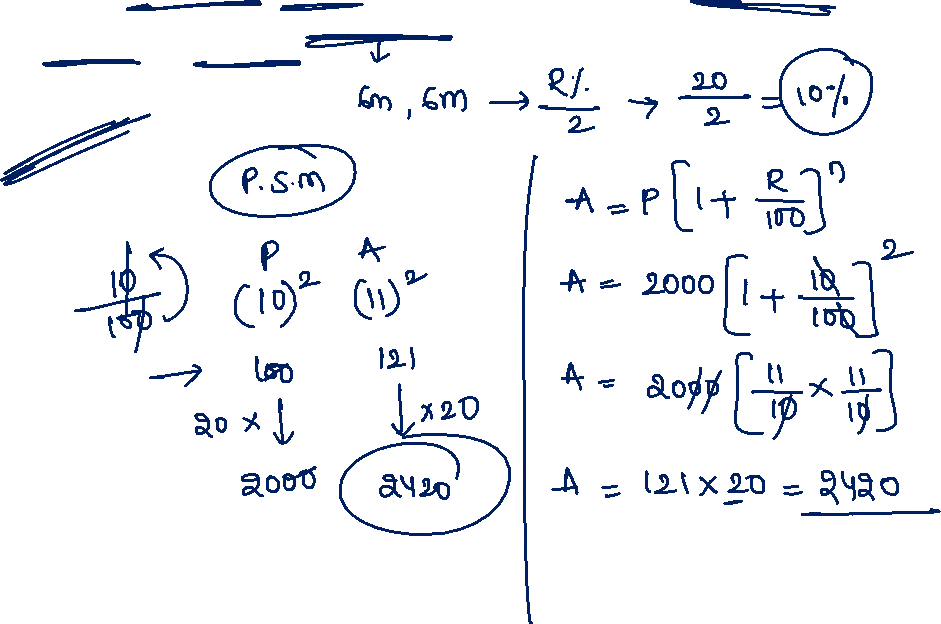 6m, 6m → R%/2 → 20/2 = 10%
P.S.M
P A
10/100 (10)² (11)²
→ 100 121
20 × ↓ ↓ ×20
2000 2420
A = P[1 + R/100]ⁿ
A = 2000[1 + 10/100]²
A = 2000[11/10 × 11/10]
A = 121 × 20 = 2420